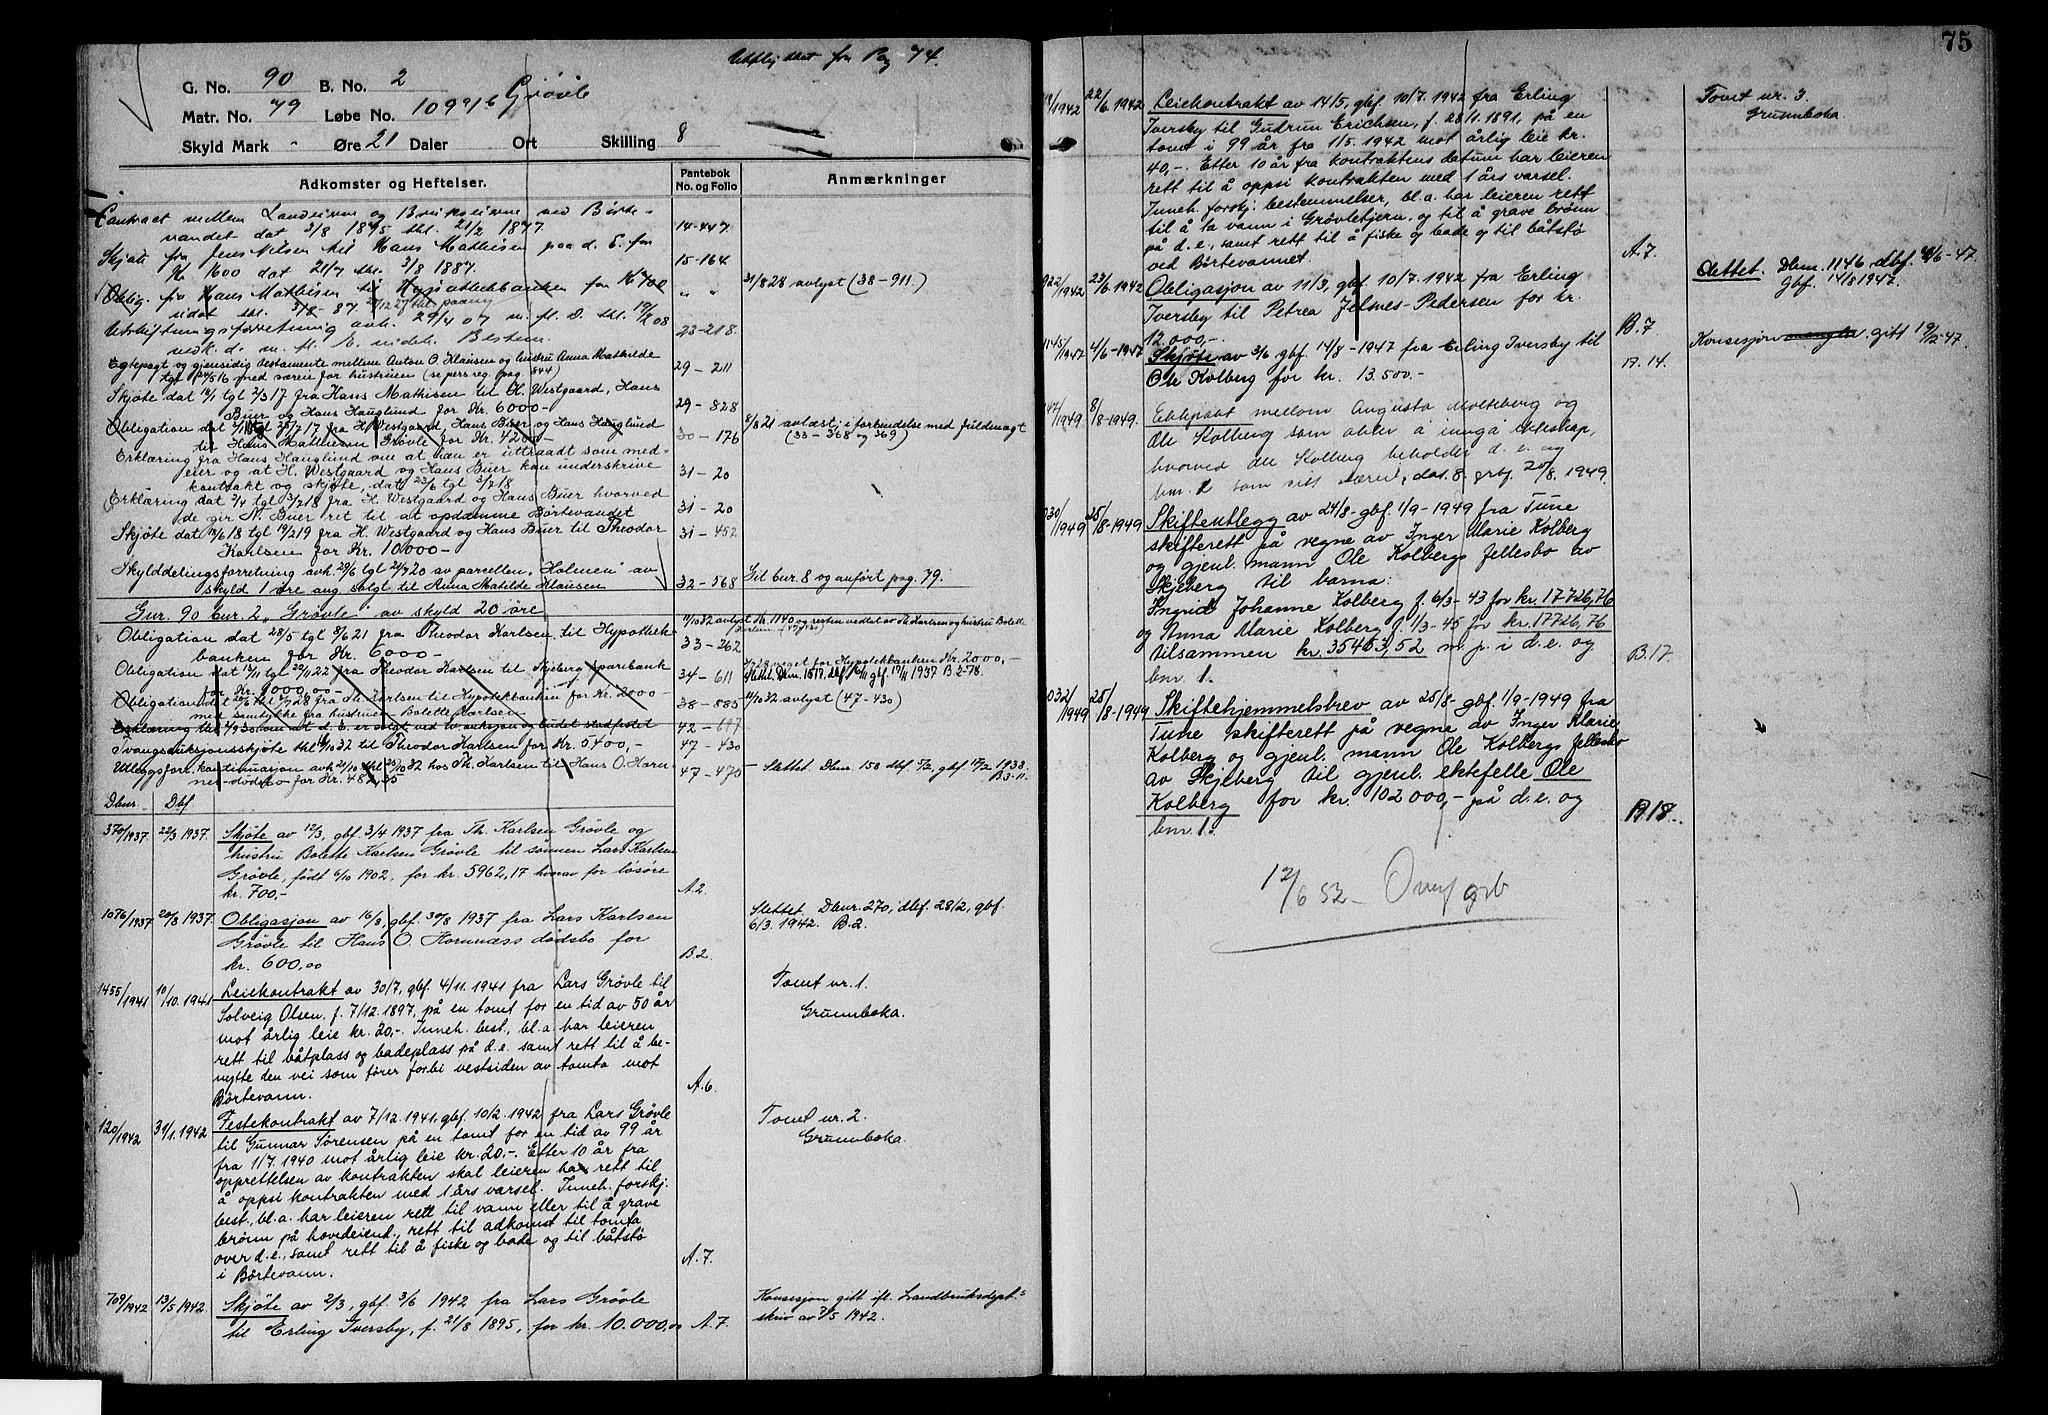 75
fra Pag 74.
G. No. 90 B. No. 2 Grøvle
Matr. No. 79 Løbe No. 109 a/b
Skyld Mark - Øre 21 Daler Ort Skilling 8
Adkomster og Heftelser.
Pantebok
No. og Folio
Anmærkninger
Contract mellem Landeierne og Brukseierne ved Børte-
vandet dat 3/8 1895 thl. 21/2 1897. 14-447
Skjøte fra Jens Nilsen til Hans Mathisen paa d. E. for
K. 1600 dat 21/7 thl. 3/8 1887. 15-164
Oblig. fra Hans Mathisen til Hypothekbanken for K 700 " " 31/8 28 avlyst (38-911.)
sidst thl. 3/8 87.
Udskiftningsforretning avh. 29/4 07 m. fl. D. thl. 19/2 08 23-218.
vedk. d. m. fl. E. indeh. Bestem.
Egtepagt og gjensidig testamente mellem Anton O. Klausen og hustru Anna Mathilde
tgl 24/5 16 med særeie for hustruen (se pers reg. pag. 844) 29-211
Skjøte dat 18/1 tgl 2/3 17 fra Hans Mathisen til H. Westgaard, Hans
Buer og Hans Hauglund for Kr. 6000- 29-828
Obligation dat tgl 25/7 17 fra H. Westgaard, Hans Buer og Hans Hauglund
til Hans Mathisen Grøvle for Kr. 4200- 30-176 8/8 21 avlæst i forbindelse med fuldmagt
(33-368 og 369)
Erklæring fra Hans Hauglund om at han er uttraadt som med-
eier og at H. Westgaard og Hans Buer kan underskrive
kontrakt og skjøte, dat 23/6 tgl 3/7 18 31-20
Erklæring dat 2/4 tgl 3/7 18 fra H. Westgaard og Hans Buer hvorved
de gir N. Buer ret til at opdæmme Børtevandet 31-20
Skjøte dat 12/6 18 tgl 19/2 19 fra H. Westgaard og Hans Buer til Theodor
Karlsen for Kr. 10000- 31-452
Skylddelingsforretning avh. 29/6 tgl 21/7 20 av parcellen "Holmen" av
skyld 1 øre ang solgt til Anna Matilde Klausen 32-568 Til bnr. 8 og anført pag. 79.
Gnr. 90 bnr. 2 "Grøvle" av skyld 20 øre
Obligation dat 28/5 tgl 8/6 21 fra Theodor Karlsen til Hypothek-
banken for Kr. 6000- 33-262
Obligation dat 13/11 tgl 22/11 22 fra Theodor Karlsen til Skjeberg Sparebank
for Kr. 9000,00- 34-611 Slettet. Dbnr. 1517, dbf. 16/11 gbf. 17/11 1937 B.2-78.
Obligation dat 20/6 tgl 12/7 28 fra Th. Karlsen til Hypotekbanken for Kr. 2000- 38-885 11/10 32 avlyst (47-430)
med samtykke fra hustruen Bolette Karlsen
Erklæring thl 4/9 30 om at d. E. er solgt ved tv. auksjon og budet stadfestet 42-617
Tvangsauksjonsskjøte thl 11/10 32 til Theodor Karlsen for Kr. 5400,- 47-430
Utleggsforr. kontinuasjon avh 21/10 thl 28/10 32 hos Th. Karlsen til Hans O. Horn-
nes dødsbo for Kr. 482,35 47-475 - Slettet. Dbnr. 158 dbf. 5/2, gbf. 17/2 1938.
B3-11.
Dbnr. Dbf
370/1937 22/3 1937. Skjøte av 12/3, gbf. 3/4 1937 fra Th. Karlsen Grøvle og
hustru Bolette Karlsen Grøvle til sønnen Lars Karlsen
Grøvle, født 6/10 1902, for kr. 5962,17 hvorav for løsøre
kr. 700,- A.2.
1076/1937 20/8 1937. Obligasjon av 16/8, gbf. 30/8 1937 fra Lars Karlsen
Grøvle til Hans O. Hornnæss dødsbo for
kr. 600,00 B.2.
Slettet. Dbnr. 270, dbf. 28/2, gbf.
6/3. 1942. B.2.
1455/1941 10/10.1941 Leiekontrakt av 30/7, gbf. 4/11. 1941 fra Lars Grøvle til
Solveig Olsen, f. 7/12.1897, på en tomt for en tid av 50 år
mot årlig leie kr. 20,-. Inneh. best., bl.a. har leieren
rett til båtplass og badeplass på d.e. samt rett til å be-
nytte den vei som fører forbi vestsiden av tomta mot
Børtevann. A.6.
Tomt nr. 1.
Grunnboka.
120/1942 31/1.1942 Festekontrakt av 7/12.1941, gbf. 10/2.1942 fra Lars Grøvle
til Gunnar Sørensen på en tomt for en tid av 99 år
fra 1/7.1940 mot årlig leie kr. 20,-. Etter 10 år fra
opprettelsen av kontrakten skal leieren ha rett til
å oppsi kontrakten med 1 års varsel. Inneh. forskj.
best., bl.a. har leieren rett til vann eller til å grave
brønn på hovedeiend., rett til adkomst til tomta
over d.e., samt rett til å fiske og bade og til båtstø
i Børtevann. A.7.
Tomt nr. 2.
Grunnboka.
709/1942 13/5 1942. Skjøte av 2/3, gbf. 3/6 1942 fra Lars Grøvle
til Erling Iversby, f. 21/8 1895, for kr. 10.000,00 A.7.
Konsesjon gitt ifl. Landbruksdept.s
skriv av 7/5 1942.
/1942 22/6.1942 Leiekontrakt av 14/5, gbf. 10/7.1942 fra Erling
Iversby til Gudrun Erichsen, f. 28/1.1891, på en
tomt i 99 år fra 1/5.1942 mot årlig leie kr.
40,-. Etter 10 år fra kontraktens datum har leieren
rett til å oppsi kontrakten med 1 års varsel.
Inneh. forskj. bestemmelser, bl.a. har leieren rett
til å ta vann i Grøvletjern, og til å grave brønn
på d.e., samt rett til å fiske og bade og til båtstø
ved Børtevannet. A.7.
Tomt nr. 3.
Grunnboka
922/1942 23/6.1942 Obligasjon av 11/3, gbf. 10/7.1942 fra Erling
Iversby til Petrea Jelsnes-Pedersen for kr.
12.000,-. B.7
Slettet. Dbnr. 1146, dbf. 4/6-47.
Gbf. 14/8 1947.
1145/1947 4/6-1947 Skjøte av 3/6 gbf. 14/8-1947 fra Erling Iversby til
Ole Kolberg for kr. 13.500.- A.14.
Konsesjon mangler. gitt 19/2-47.
/1949 8/8-1949. Ektepakt mellom Augusta Molteberg og
Ole Kolberg som akter å inngå ekteskap,
hvorved Ole Kolberg beholder d.e. og
bnr. 1 som sitt særeie, dat. 8. gbf. 20/8. 1949.
1030/1949 25/8-1949 Skifteutlegg av 24/8-gbf. 1/9-1949 fra Tune
skifterett på vegne av Inger Marie Kolberg
og gjenl. mann Ole Kolbergs fellesbo av
Skjeberg til barna:
Ingrid Johanne Kolberg f. 6/3-43 for kr. 17726,76
og Anna Marie Kolberg f. 1/3-45 for kr. 17726,76
tilsammen kr. 35453,52 m.p. i d.e. og
bnr 1. B.17.
1032/1949 25/8-1949 Skiftehjemmelsbrev av 25/8- gbf. 1/9-1949 fra
Tune skifterett på vegne av Inger Marie
Kolberg og gjenl. mann Ole Kolbergs fellesbo
av Skjeberg til gjenl. ektefelle Ole
Kolberg for kr. 102000,- på d.e. og
bnr 1. A.18.
12/6 52 - Overf grb